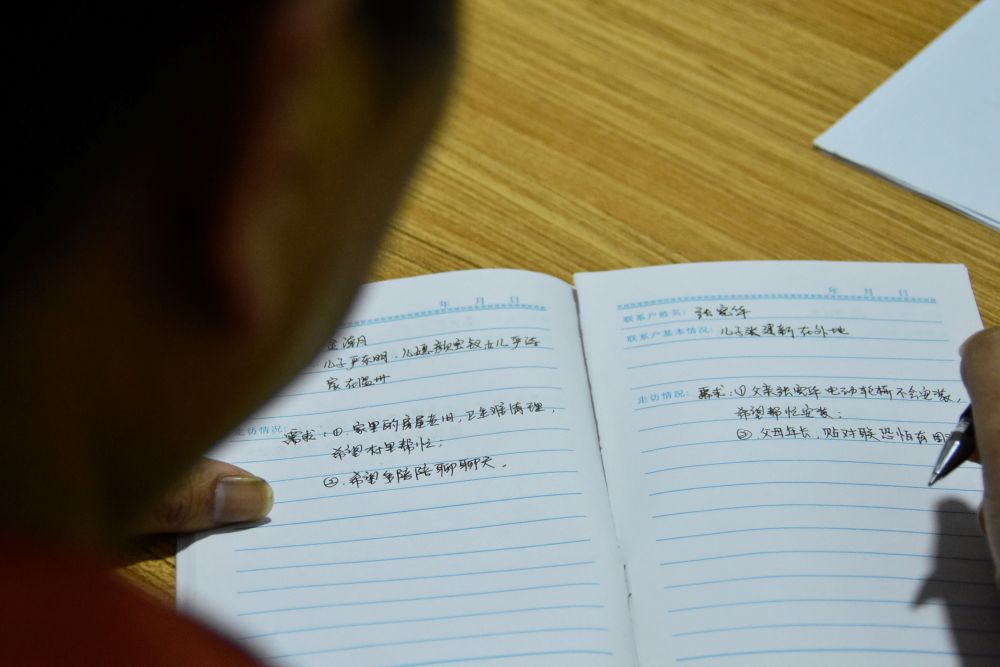 年 月 日
月
儿子严东明，儿媳
家在温州
走访情况：需求：①.家里的房屋老旧，卫生难清理，
希望村里帮忙；
②.希望多陪陪聊聊天。
年 月 日
联系户姓名：张宪华
联系户基本情况：儿子张建新在外地
走访情况：需求：①父亲张宪华电动轮椅不会安装，
希望帮忙安装；
②父母年长，贴对联恐怕有困